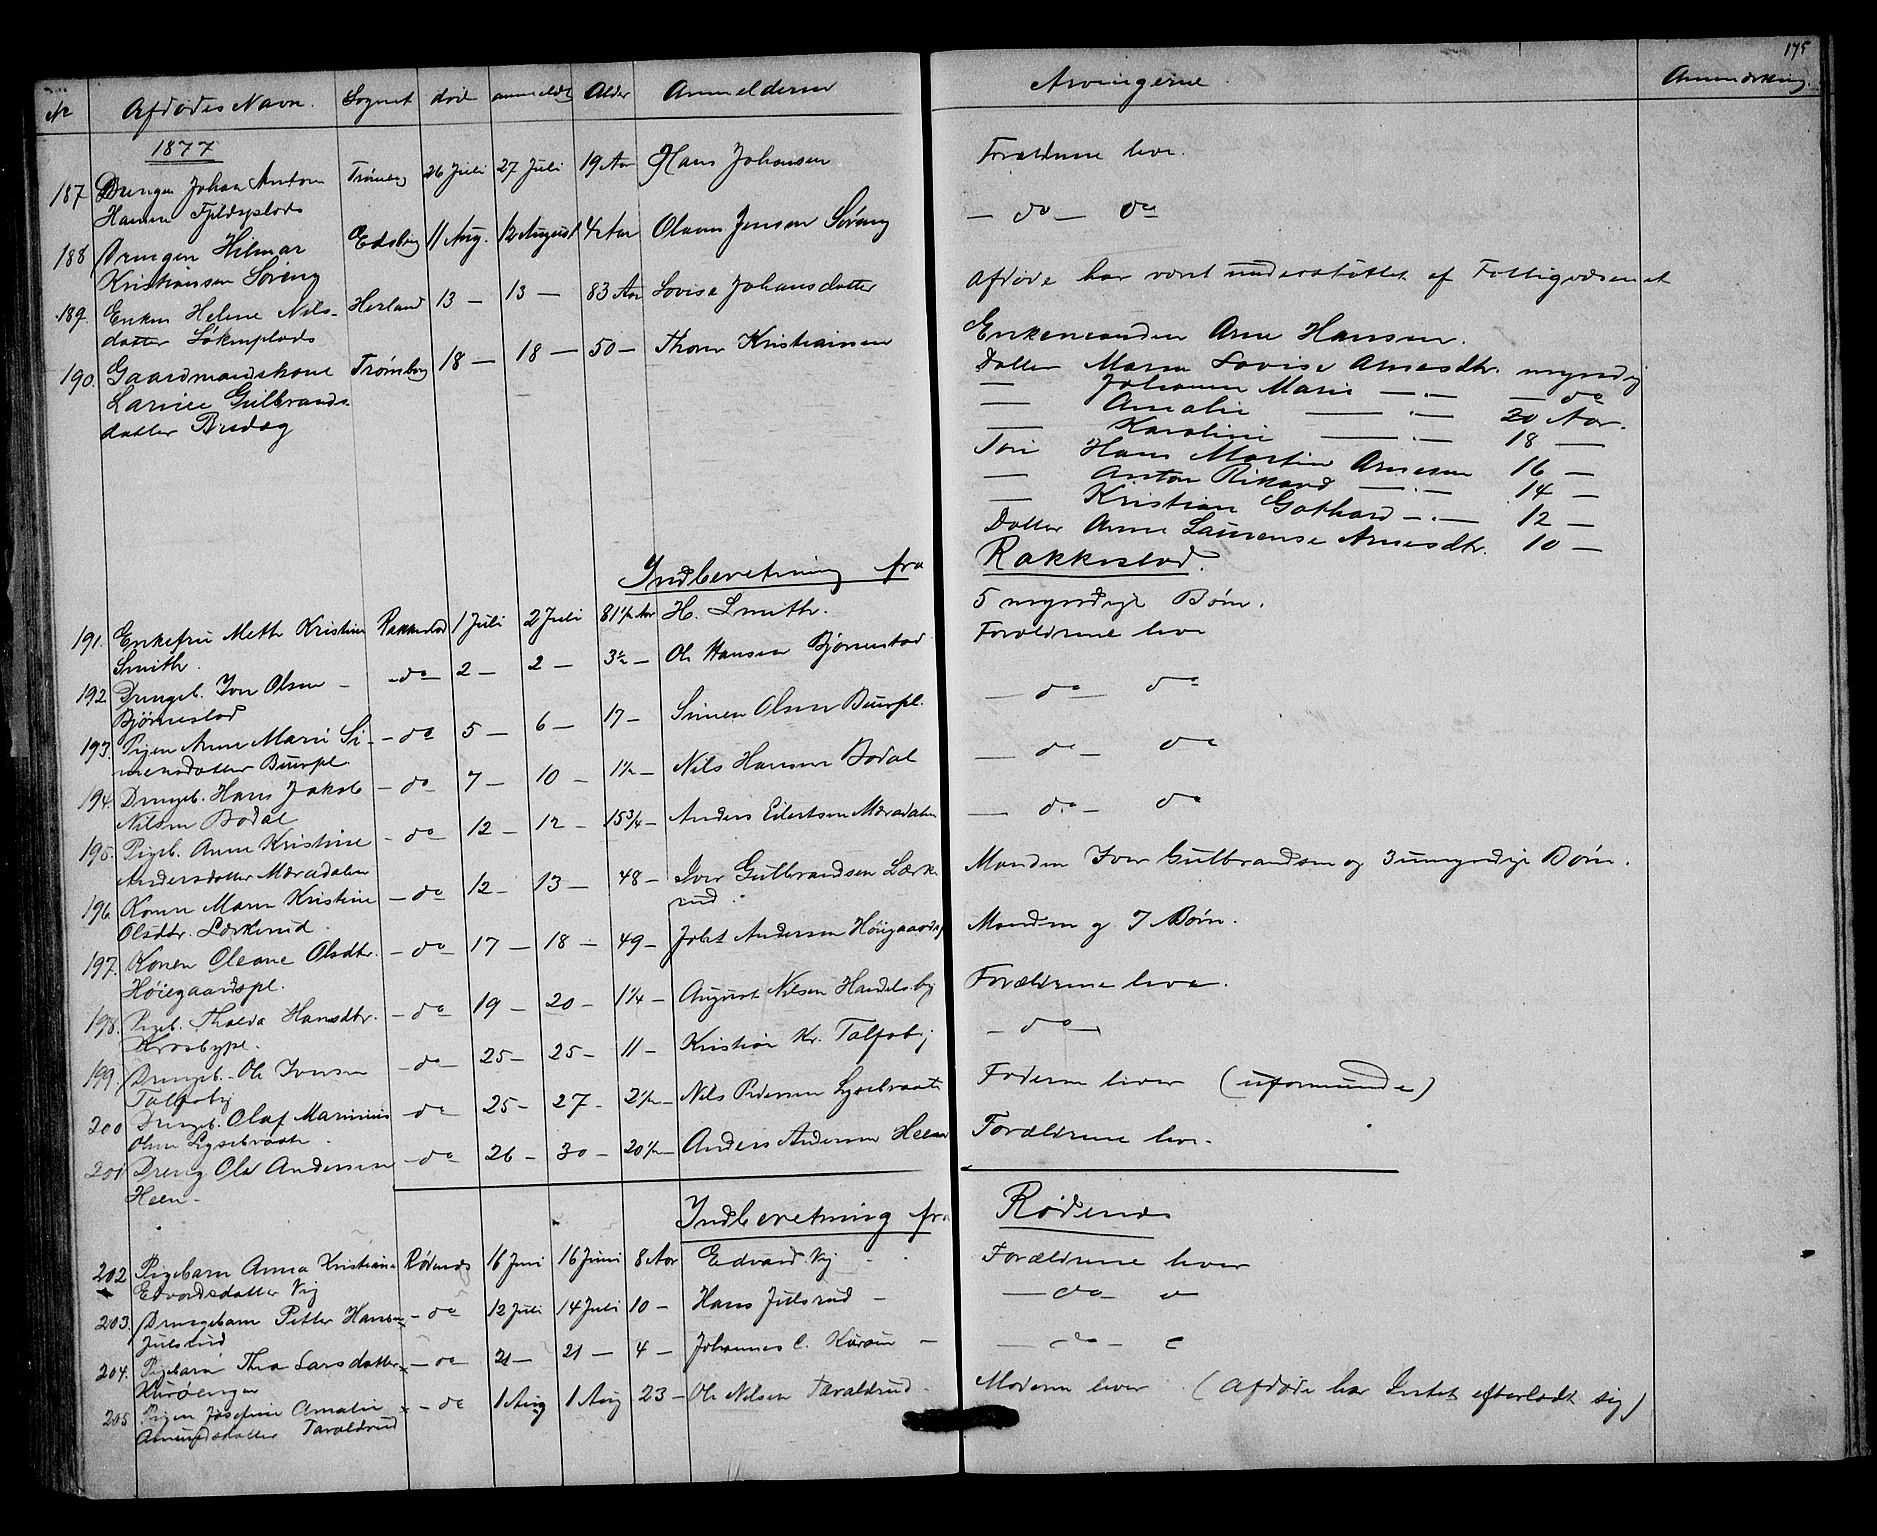 175
No Afdødes Navn. Sognet død anmeldt Alder Anmelderen Arvingerne Anmærkning.
1877
187 Drengen Johan Anton Trømborg 26 Juli 27 Juli 19 Aar Hans Johansen Forældrene leve.
Hansen Fjeldsplads
188 Drengen Hilmar Edsberg 11 Aug. 12 August 4 Aar Olaves Jensen Søreng — do — do
Kristiansen Søreng
189. Enken Helene Nils- Herland 13 — 13 — 83 Aar Lovise Johansdatter Afdøde har været understøttet af Fattigvæsenet
datter Løkenplads
190. Gaardmandskone Trømborg 18 — 18 — 50 — Thorer Kristiansen Enkemanden Arne Hansen.
Larine Gulbrands-
datter
Datter Maren Lovise Arnesdtr. myndig
— Johanne Marie — . — — do
— Amalie — . — 20 Aar.
— Karoline — . — 18 —
Søn Hans Martin Arnesen 16 —
— Anton Rikard — . — 14 —
— Kristian Gothard — . — 12 —
Datter Anne Laurense Arnesdtr. 10 —
Indberetning fra Rakkestad.
191. Enkefru Mette Kristine Rakkestad 1 Juli 2 Juli 81 1/2 Aar H. Smith. 5 myndige Børn.
Smith.
192 Drengeb. Iver Olsen — do 2 — 2 — 3 1/2 — Ole Hansen Bjørnestad Forældrene leve
Bjørnestad
193. Pigen Anne Marie Si- — do 5 — 6 — 17 — Simen Olsen Buerpl. — do — do
mensdatter Buerpl.
194. Drengeb. Hans Jakob — do 7 — 10 — 1 1/2 — Nils Hansen Bodal — do — do
Nilsen Bodal
195. Pigeb. Anne Kristine — do 12 — 12 — 15 3/4 — Anders Eilertsen Mæradalen — do — do
Andersdatter Mæradalen
196. Konen Maren Kristine — do 12 — 13 — 48 — Iver Gulbrandsen Lærke- Manden Iver Gulbrandsen og 3 umyndige Børn.
Olsdtr. Lærkerud. rud.
197. Konen Oleane Olsdtr. — do 17 — 18 — 49 — Johs Andersen Høiegaardspl Manden og 7 Børn.
Høiegaardspl.
198. Pigeb. Thalda Hansdtr. — do 19 — 20 — 1 1/4 — August Nilsen Haudelsby Forældrene leve.
Krosbypl.
199. Drengeb. Ole Iversen — do 25 — 25 — 11 — Kristian Kr. Talfoby — do —
Talfoby
200 Drengeb. Olaf Marinius — do 25 — 27 — 2 1/2 — Nils Pedersen Lysebraate Faderen lever (uformuende)
Olsen Lysebraate.
201 Dreng Ole Andersen — do 26 — 30 — 20 1/2 — Anders Andersen Heen Forældrene leve.
Heen
Indberetning fra Rødenes
202 Pigebarn Anna Kristiane Rødenes 16 Juni 16 Juni 8 Aar Edvard Vig Forældrene lever
Edvardsdatter Vig
203. Drengebarn Petter Hansen — do 12 Juli 14 Juli 10 — Hans Julsrud — — do —
Julsrud
204. Pigebarn Thea Larsdatter — do 21 — 21 — 4 — Johannes C. Kurøen — — do —
Kurøenger
205 Pigen Josefine Amalie — do 1 Aug 1 Aug 23 — Ole Nilsen Taraldrud Moderen lever (Afdøde har Intet efterladt sig)
Amundsdatter Taraldrud